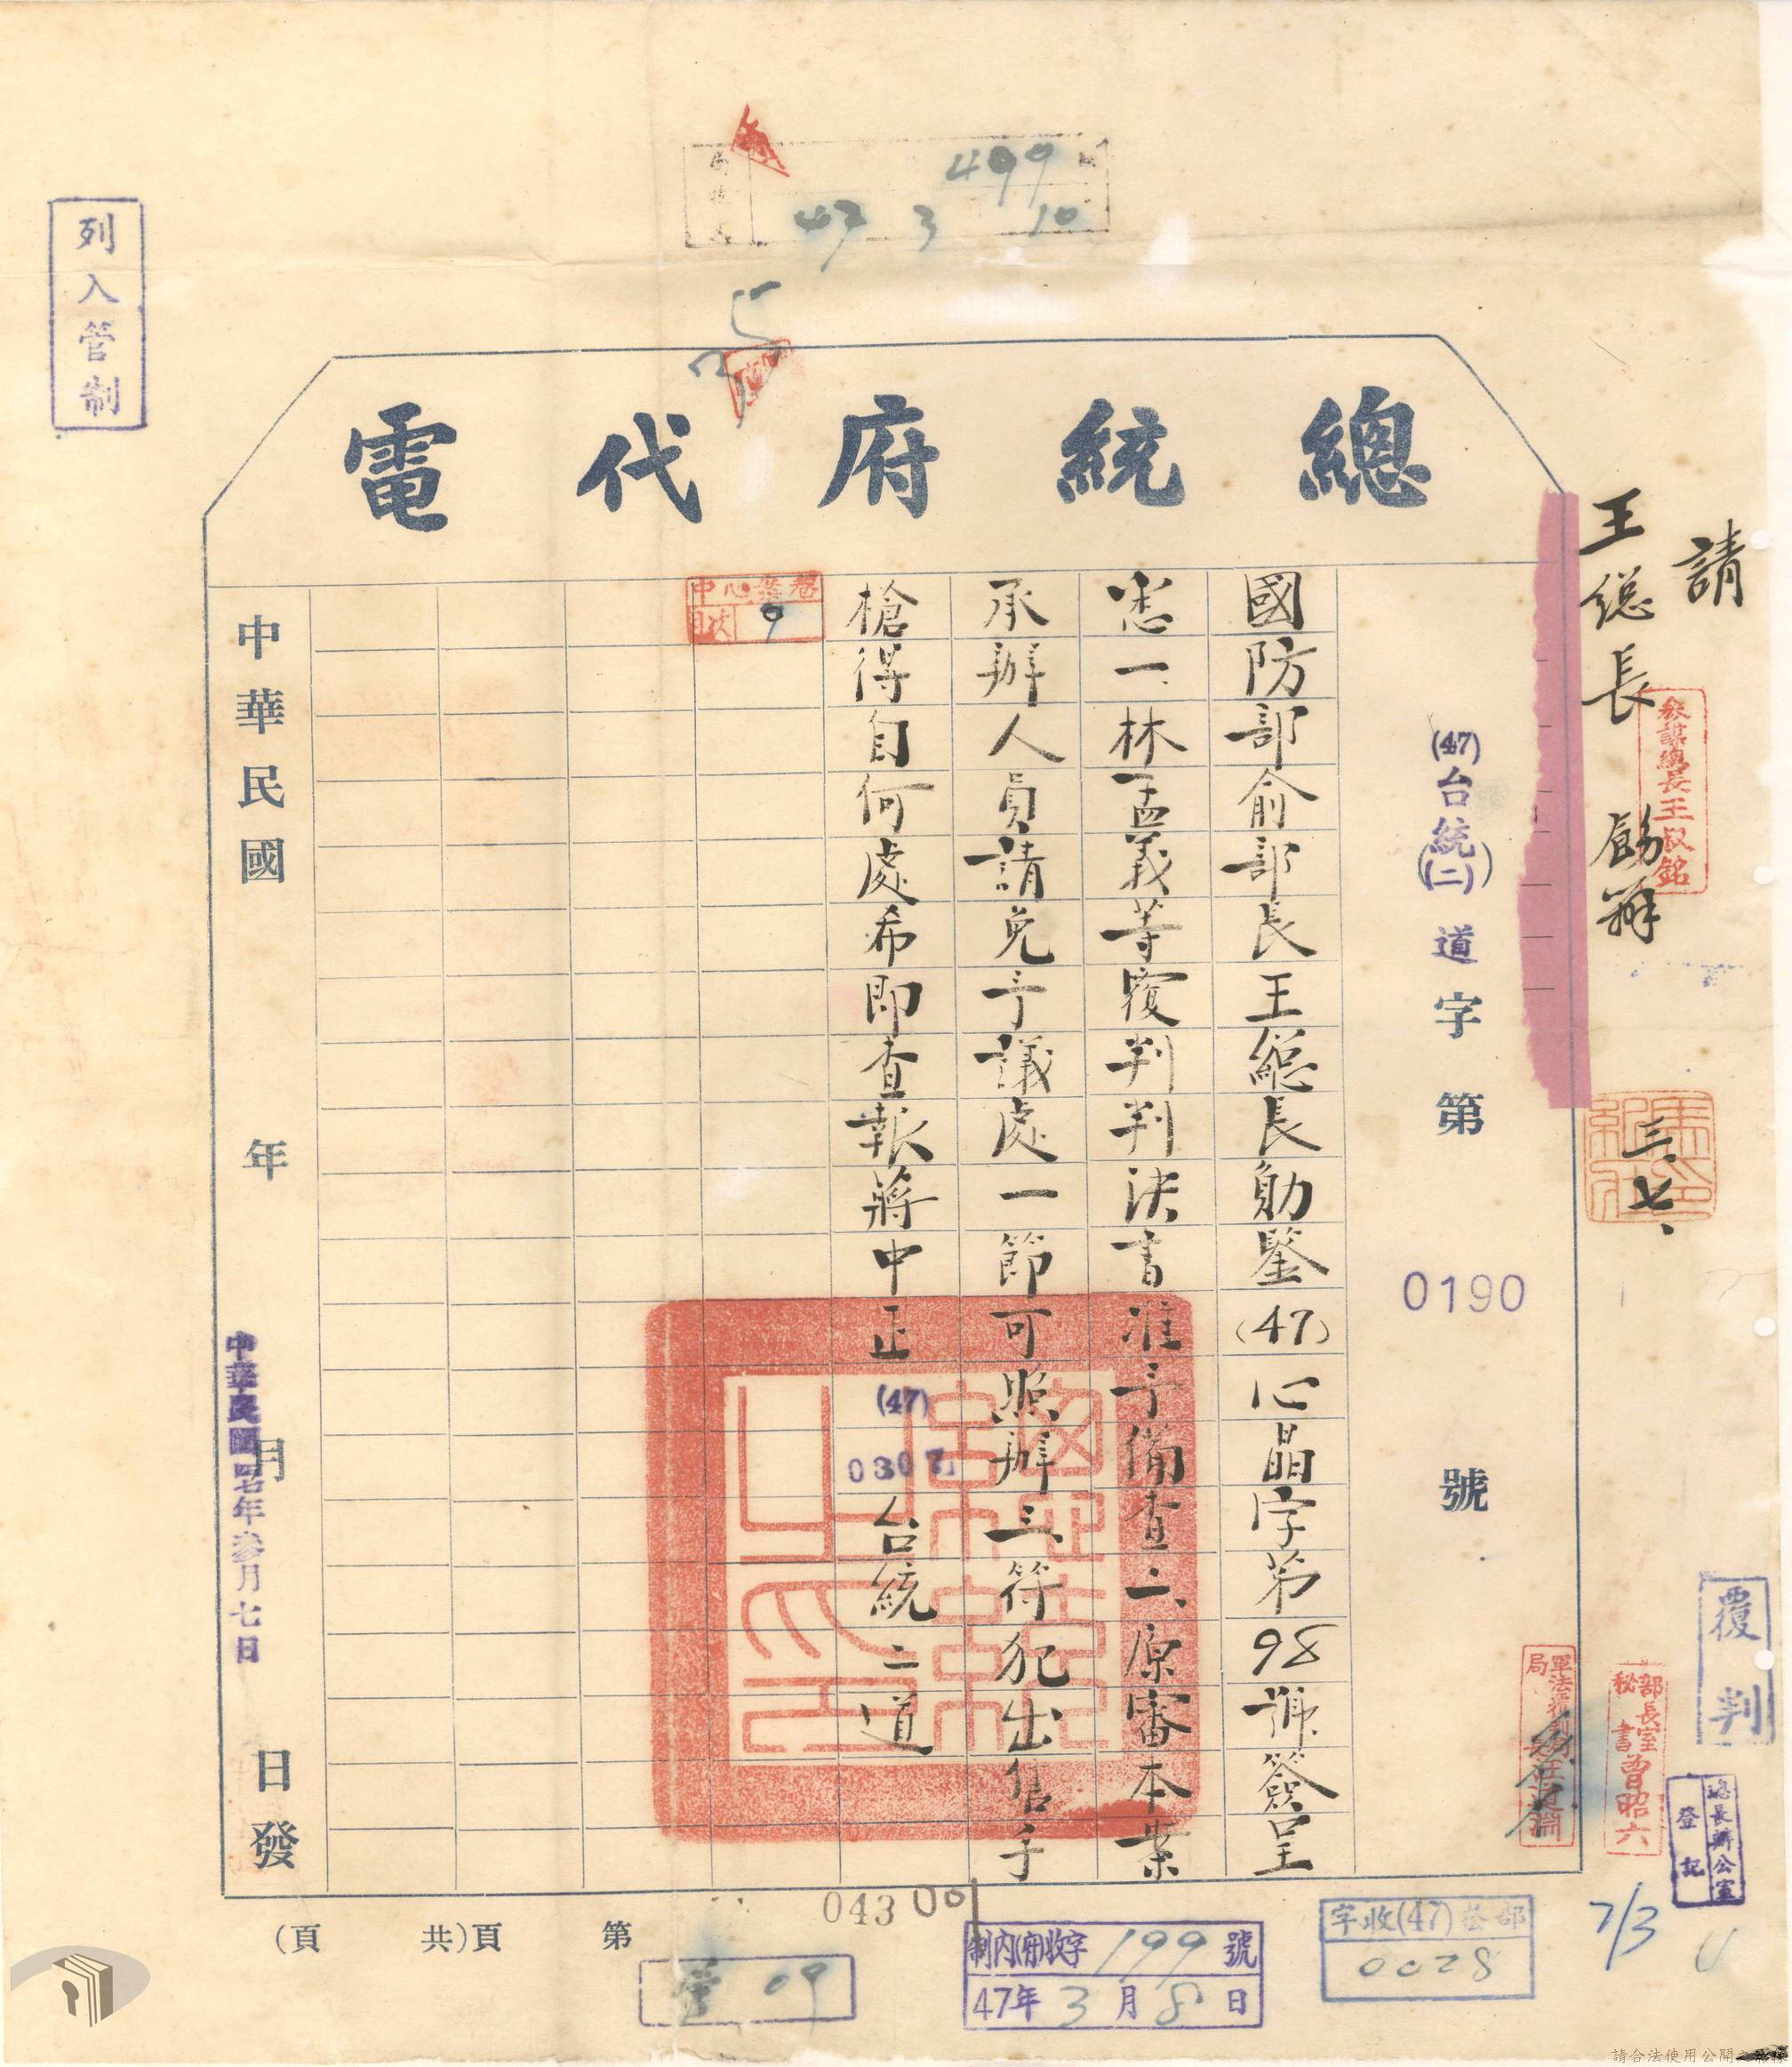 總統府代電
(47)台統(二)道字第0190號
國防部俞部長王總長勛鑒(47)心晶字第98號簽呈
悉一、林孟義等覆判判決書准予備查二、原審本案
承辦人員請免予議處一節可照辦三、符犯出售手
槍得自何處希即查報蔣中正(47)0307台統二道
中華民國 年 月 日發
中華民國四七年參月七日
第 頁(共 頁)
請
王總長 勛辦
參謀總長王叔銘
三、七、
列入管制
499
47 3 10
9
覆判
部長室秘書曾昭六
總長辦公室登記
7/3
04300
制內(府)收字199號
47年3月8日
0028
管 09
請合法使用公開之影像